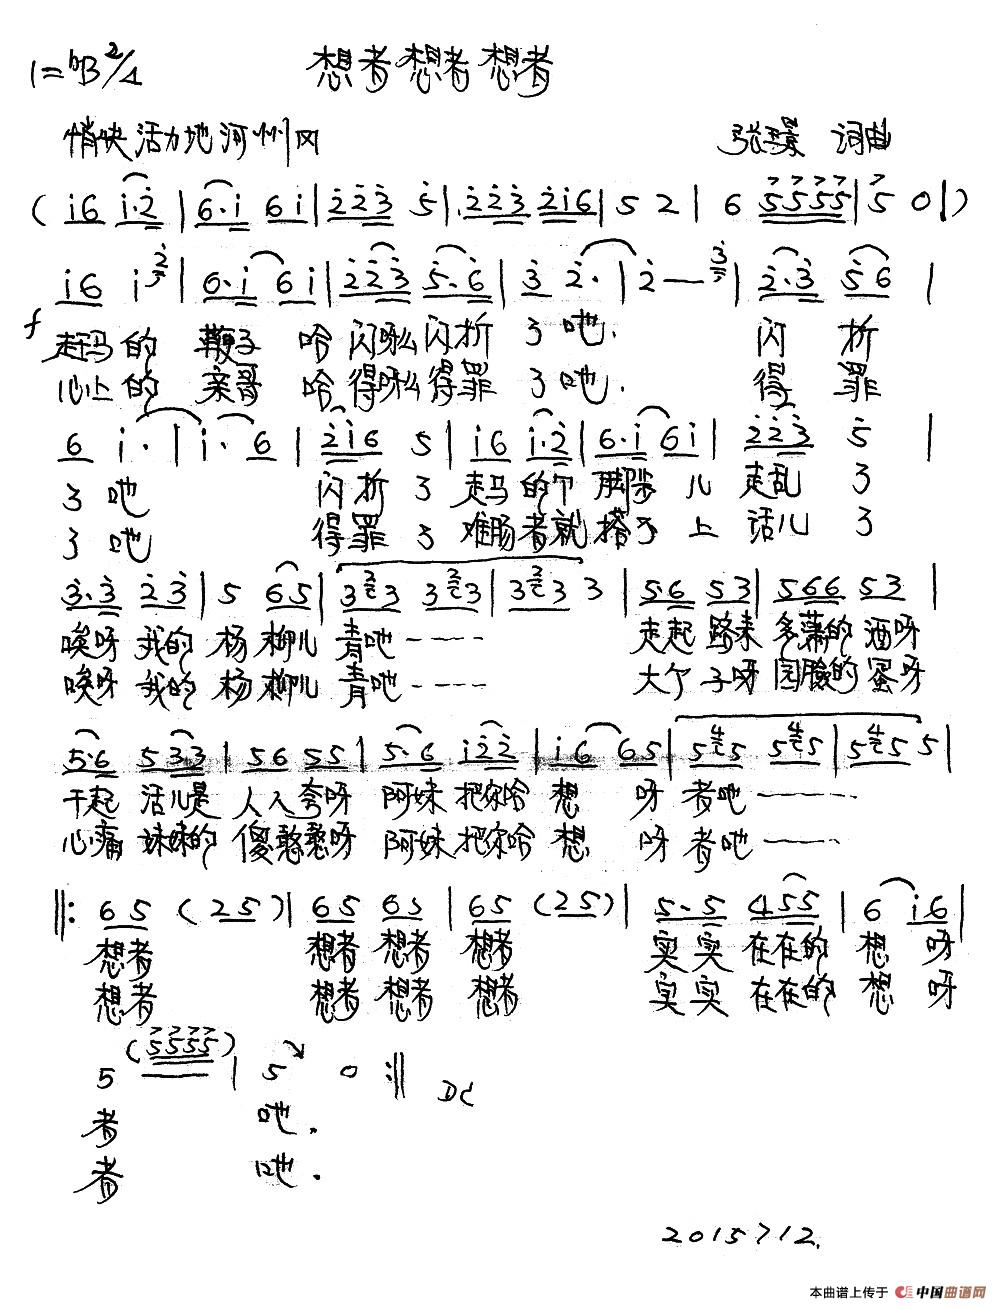 1=♭B 2/4 想者想者想者
悄快活力地 河州风 张璟 词曲
( i6 i·2 | 6·i 6i | 223 5 | 223 2i6 | 5 2 | 6 5555 | 5 0 | )
i6 i | 6·i 6i | 223 5·6 | 3 2· | 2 — | 2·3 56 |
f 赶马的 鞭子 哈 闪呀么闪折 了吔. 闪 折
心上的 亲哥 哈 得呀么得罪 了吔. 得 罪
6 i· | i· 6 | 2i6 5 | i6 i·2 | 6·i 6i | 223 5 |
了吔 闪折 了 走马的个 脚步 儿 走乱 了
了吔 得罪 了 难肠者就 搭不 上 话儿 了
3·3 23 | 5 65 | 323 323 | 323 3 | 56 53 | 566 53 |
唉呀 我的 杨柳儿 青吔 ---- 走起 路来 多蕩的 洒呀
唉呀 我的 杨柳儿 青吔 ---- 大个 子呀 园脸的 蜜呀
5·6 533 | 56 55 | 5·6 i22 | i6 65 | 545 545 | 545 5 |
干起 活儿是 人人夸呀 阿妹 把你哈 想 呀 者吔 ----
心痛 妹妹的 傻憨憨呀 阿妹 把你哈 想 呀 者吔 ----
‖: 65 (25) | 65 65 | 65 (25) | 5·5 455 | 6 i6 |
想者 想者 想者 想者 实实 在在的 想 呀
想者 想者 想者 想者 实实 在在的 想 呀
5 (5555) | 5 0 :‖ DC
者 吔.
者 吔.
2015 7 12.
本曲谱上传于 中国曲谱网